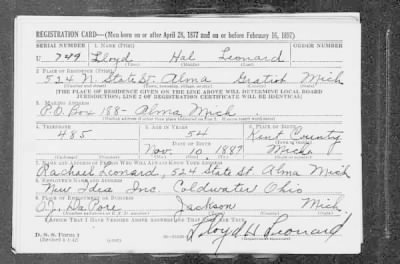 REGISTRATION CARD—(Men born on or after April 28, 1877 and on or before February 16, 1897)
SERIAL NUMBER 1. NAME (Print) ORDER NUMBER
U 749 Lloyd Hal Leonard
(First) (Middle) (Last)
2. PLACE OF RESIDENCE (Print)
524 N. State St. Alma Gratiot Mich
(Number and street) (Town, township, village, or city) (County) (State)
[THE PLACE OF RESIDENCE GIVEN ON THE LINE ABOVE WILL DETERMINE LOCAL BOARD
JURISDICTION; LINE 2 OF REGISTRATION CERTIFICATE WILL BE IDENTICAL]
3. MAILING ADDRESS
P.O. Box 188 - Alma, Mich
4. TELEPHONE 5. AGE IN YEARS 6. PLACE OF BIRTH
485 54 Kent County
DATE OF BIRTH
Nov. 10, 1887 Mich
(Mo.) (Day) (Yr.)
7. NAME AND ADDRESS OF PERSON WHO WILL ALWAYS KNOW YOUR ADDRESS
Rachael Leonard, 524 State St. Alma Mich
8. EMPLOYER'S NAME AND ADDRESS
New Idea Inc. Coldwater Ohio
O.J. Jackson Mich.
I AFFIRM THAT I HAVE VERIFIED ABOVE ANSWERS AND THAT THEY ARE TRUE.
D. S. S. Form 1
Lloyd H Leonard